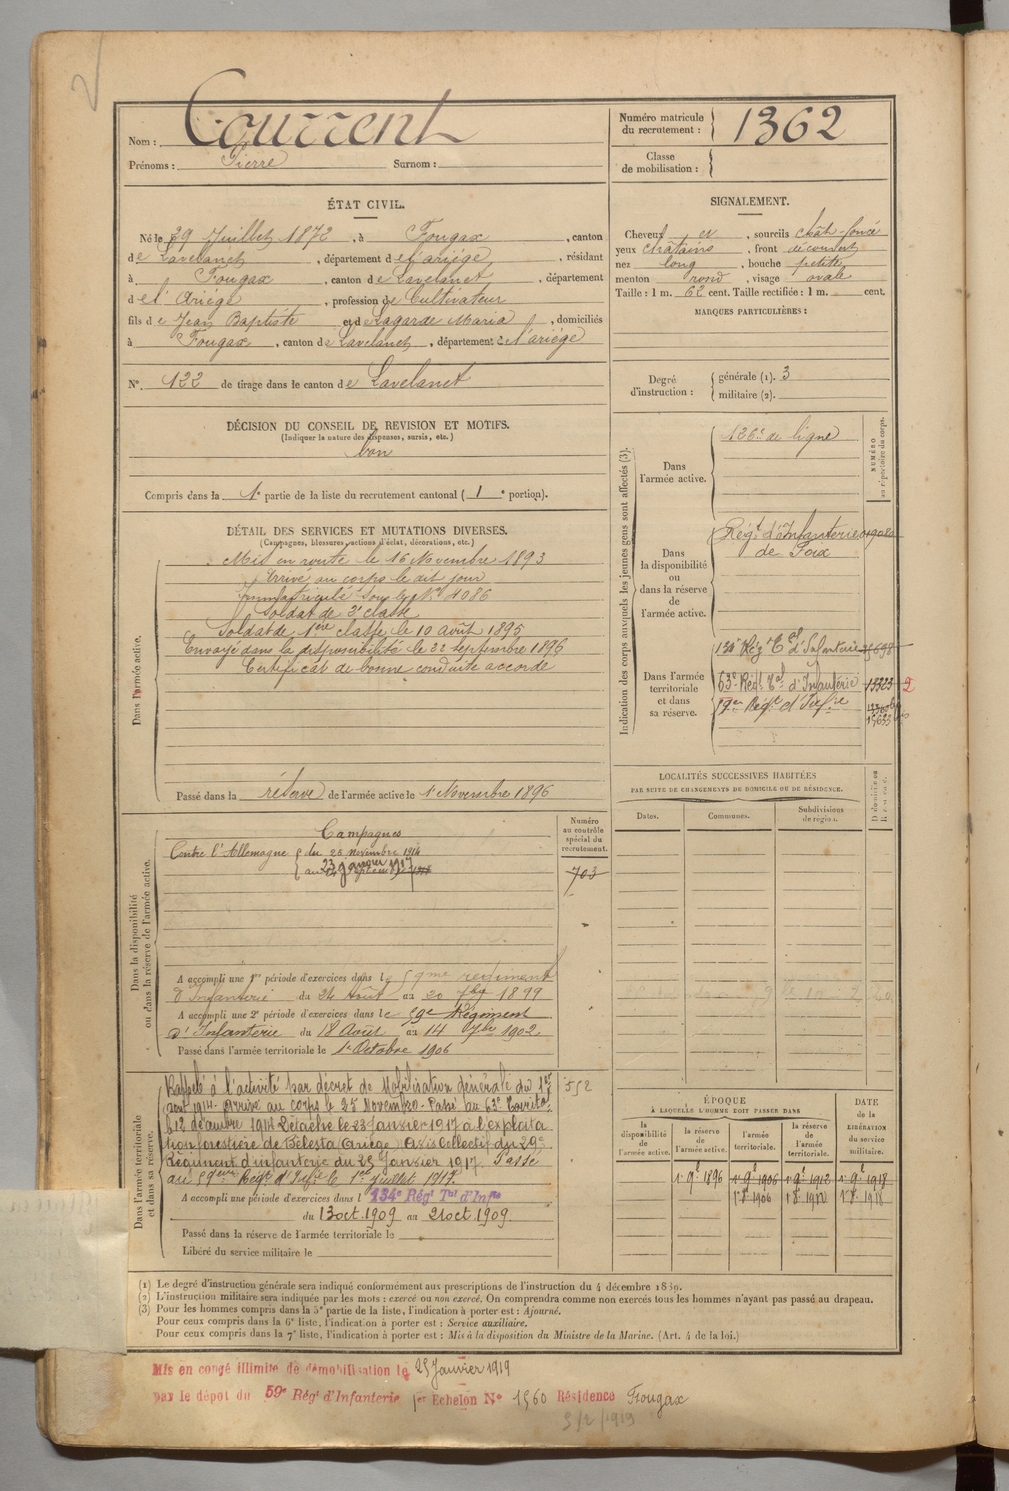 Nom : Courrent
Prénoms : Pierre Surnom :
Numéro matricule du recrutement : 1362
Classe de mobilisation :
ÉTAT CIVIL.
Né le 29 Juillet 1872, à Fougax, canton
de Lavelanet, département de l'ariège, résidant
à Fougax, canton de Lavelanet, département
de l'Ariège, profession de Cultivateur
fils de Jean Baptiste et de Lagarde Maria, domiciliés
à Fougax, canton de Lavelanet, département de l'ariège
N° 122 de tirage dans le canton de Lavelanet
SIGNALEMENT.
Cheveux et, sourcils chât. foncé
yeux chatains, front découvert
nez long, bouche petite
menton rond, visage ovale
Taille : 1 m. 62 cent. Taille rectifiée : 1 m. cent.
MARQUES PARTICULIÈRES :
Degré d'instruction : générale (1). 3
militaire (2).
DÉCISION DU CONSEIL DE REVISION ET MOTIFS.
(Indiquer la nature des dispenses, sursis, etc.)
bon
Compris dans la 1e partie de la liste du recrutement cantonal (1e portion).
DÉTAIL DES SERVICES ET MUTATIONS DIVERSES.
(Campagnes, blessures, actions d'éclat, décorations, etc.)
Dans l'armée active.
Mis en route le 16 Novembre 1893
Arrivé au corps le dit jour
Immatriculé sous le N° 4086
Soldat de 2e classe
Soldat de 1ère classe le 10 août 1895
Envoyé dans la disponibilité le 22 septembre 1896
Certificat de bonne conduite accordé
Passé dans la réserve de l'armée active le 1 Novembre 1896
Indication des corps auxquels les jeunes gens sont affectés (3).
NUMÉRO au répertoire du corps.
Dans l'armée active.
126e de ligne
Dans la disponibilité ou dans la réserve de l'armée active.
Régt d'Infanterie
de Foix
Dans l'armée territoriale et dans sa réserve.
134e Rég. Tal d'Infanterie
63e Régt Tal d'Infanterie 13323 2
59eme Régt d'Infrie
LOCALITÉS SUCCESSIVES HABITÉES
PAR SUITE DE CHANGEMENTS DE DOMICILE OU DE RÉSIDENCE.
Dates. Communes. Subdivisions de région. Domicile ou Résidence.
Dans la disponibilité ou dans la réserve de l'armée active.
Numéro au contrôle spécial du recrutement.
703
Campagnes
Contre l'Allemagne du 25 novembre 1914
au 23 janvier 1917
A accompli une 1re période d'exercices dans le 59me régiment
d'Infanterie du 24 Août au 20 7bre 1899
A accompli une 2e période d'exercices dans le 59e Régiment
d'Infanterie du 18 Août au 14 7bre 1902
Passé dans l'armée territoriale le 1er Octobre 1906
Dans l'armée territoriale et dans sa réserve.
552
Rappelé à l'activité par décret de Mobilisation Générale du 1er
aout 1914. Arrivé au corps le 25 Novembre. Passé au 63e Territ.
le 12 décembre 1914 Détaché le 23 Janvier 1917 à l'exploita
tion forestière de Bélesta (Ariège) Avis Collectif du 29e
Régiment d'infanterie du 25 Janvier 1917. Passé
au 59eme Régt d'Infie le 1er Juillet 1917.
A accompli une période d'exercices dans l 134e Régt Tal d'Infie
du 13 oct. 1909 au 21 oct. 1909.
Passé dans la réserve de l'armée territoriale le
Libéré du service militaire le
ÉPOQUE
A LAQUELLE L'HOMME DOIT PASSER DANS
la disponibilité de l'armée active. la réserve de l'armée active. l'armée territoriale. la réserve de l'armée territoriale.
DATE de la LIBÉRATION du service militaire.
1 9e 1896 1 9e 1906 1 9e 1912 1 9e 1918
1 8e 1906 1 8e 1912 1 8e 1918
(1) Le degré d'instruction générale sera indiqué conformément aux prescriptions de l'instruction du 4 décembre 1889.
(2) L'instruction militaire sera indiquée par les mots : exercé ou non exercé. On comprendra comme non exercés tous les hommes n'ayant pas passé au drapeau.
(3) Pour les hommes compris dans la 5e partie de la liste, l'indication à porter est : Ajourné.
Pour ceux compris dans la 6e liste, l'indication à porter est : Service auxiliaire.
Pour ceux compris dans la 7e liste, l'indication à porter est : Mis à la disposition du Ministre de la Marine. (Art. 4 de la loi.)
Mis en congé illimité de démobilisation le 25 Janvier 1919
par le dépôt du 59e Régt d'Infanterie 1er Echelon N° 1560 Résidence Fougax
5/2/1919